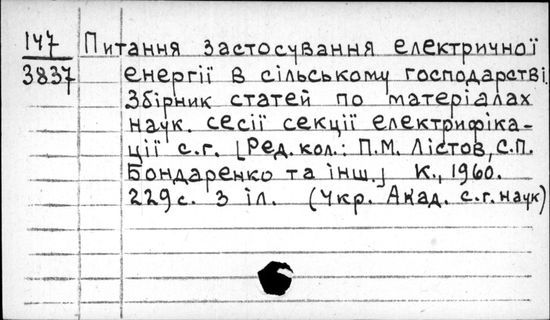 147 Питання застосування електричної
3837 енергії в сільському господарстві.
Збірник статей по матеріалах
наук. сесії секції електрифіка-
ції с.г. [Ред. кол.: П.М. Лістов, С.П.
Бондаренко та інш.] К., 1960.
229 с. з іл. (Укр. Акад. с.г. наук)